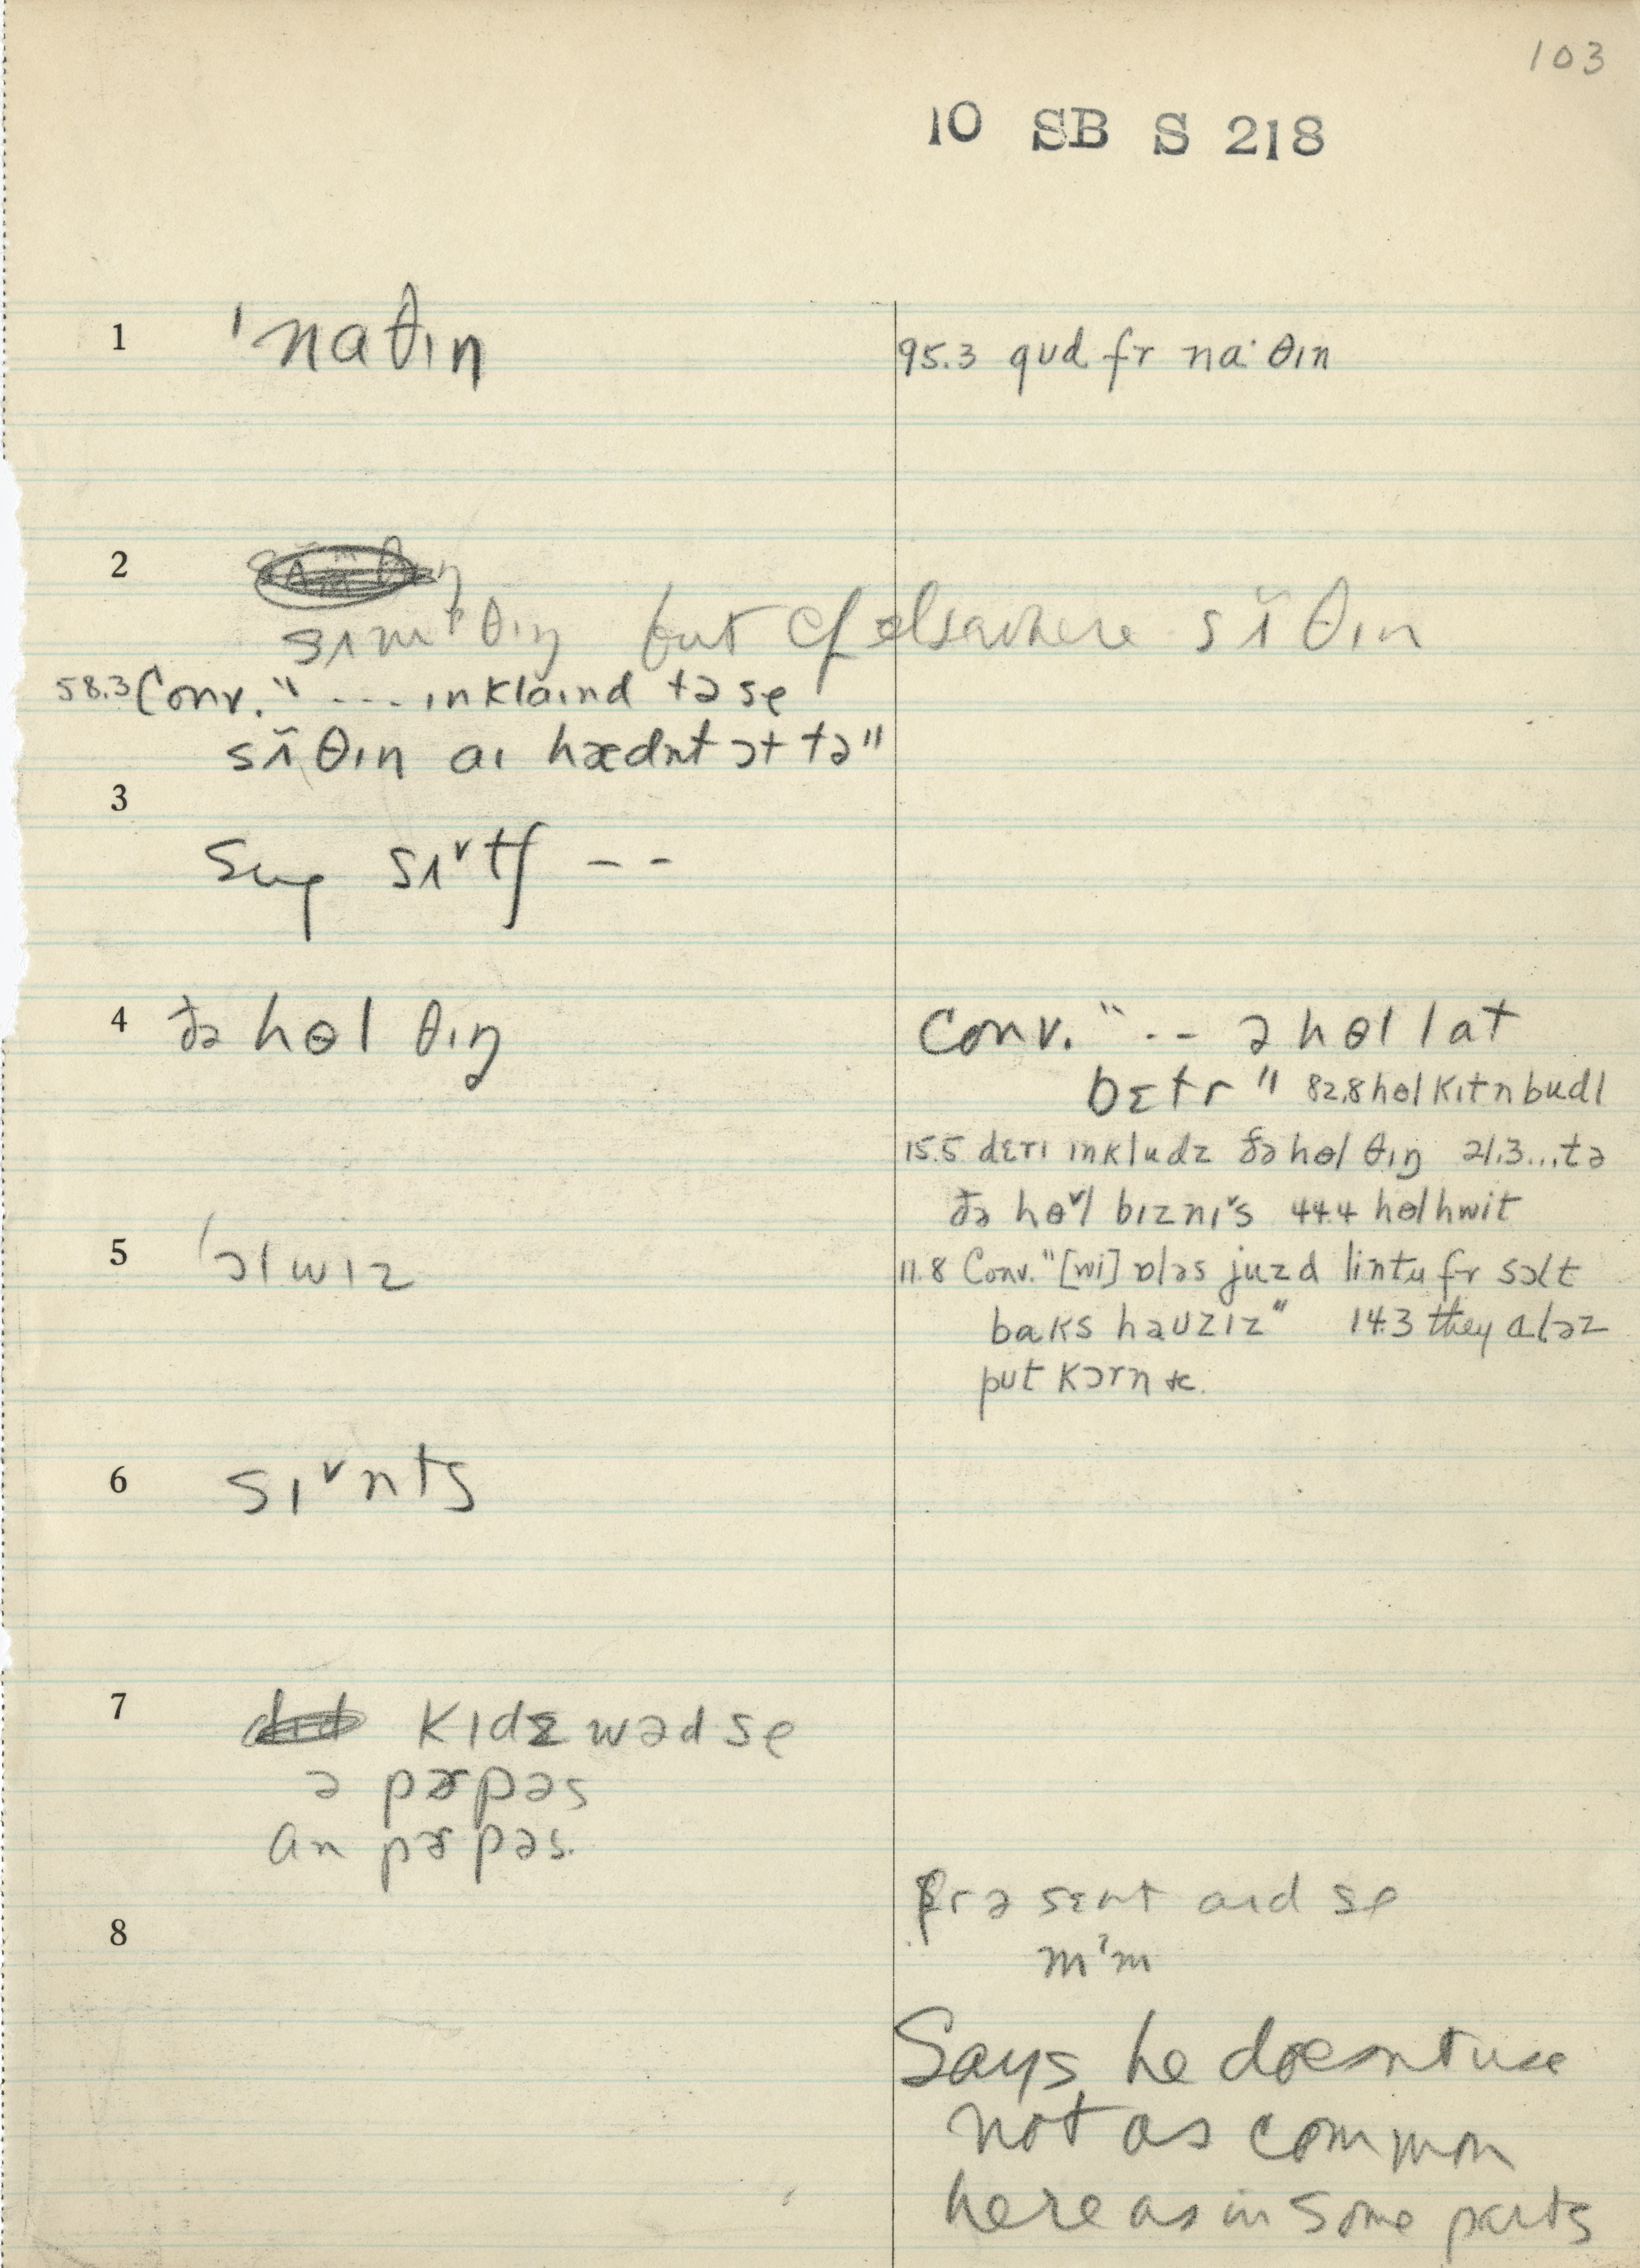 103
10 SB S 218
1 ˈnaθɪŋ 95.3 gʊd fr naˑθɪn
2
sʌmᵗθɪŋ but cf elsewhere sʌ̃θɪn
58.3 Conv. "--- ɪnklaɪnd tə se
sʌ̃θɪn aɪ hædnt ɔt tə"
3
sʌtʃ --
4 ðə hɵl θɪŋ Conv. "-- ə hɵl lat
bɛtr" 82.8 hɵl kɪtn budl
15.5 dɛrɪ ɪnkludz ðə hɵl θɪŋ 21.3...tə
ðə hɵ˅l bɪznɪ˅s 44.4 hɵl hwit
5 ˈɔlwɪz 11.8 Conv. "[wi] ɒləs juzd lintu fr sɔlt
baks hauzɪz" 14.3 they aləz
put kɔrn &c.
6 sɪ˅nts
7 kɪdɛ wəd se
ə pɚpəs
an pɚpəs.
8 fr ə sɛnt aɪd se
mʔm
Says he doesnt use
not as common
here as in some parts